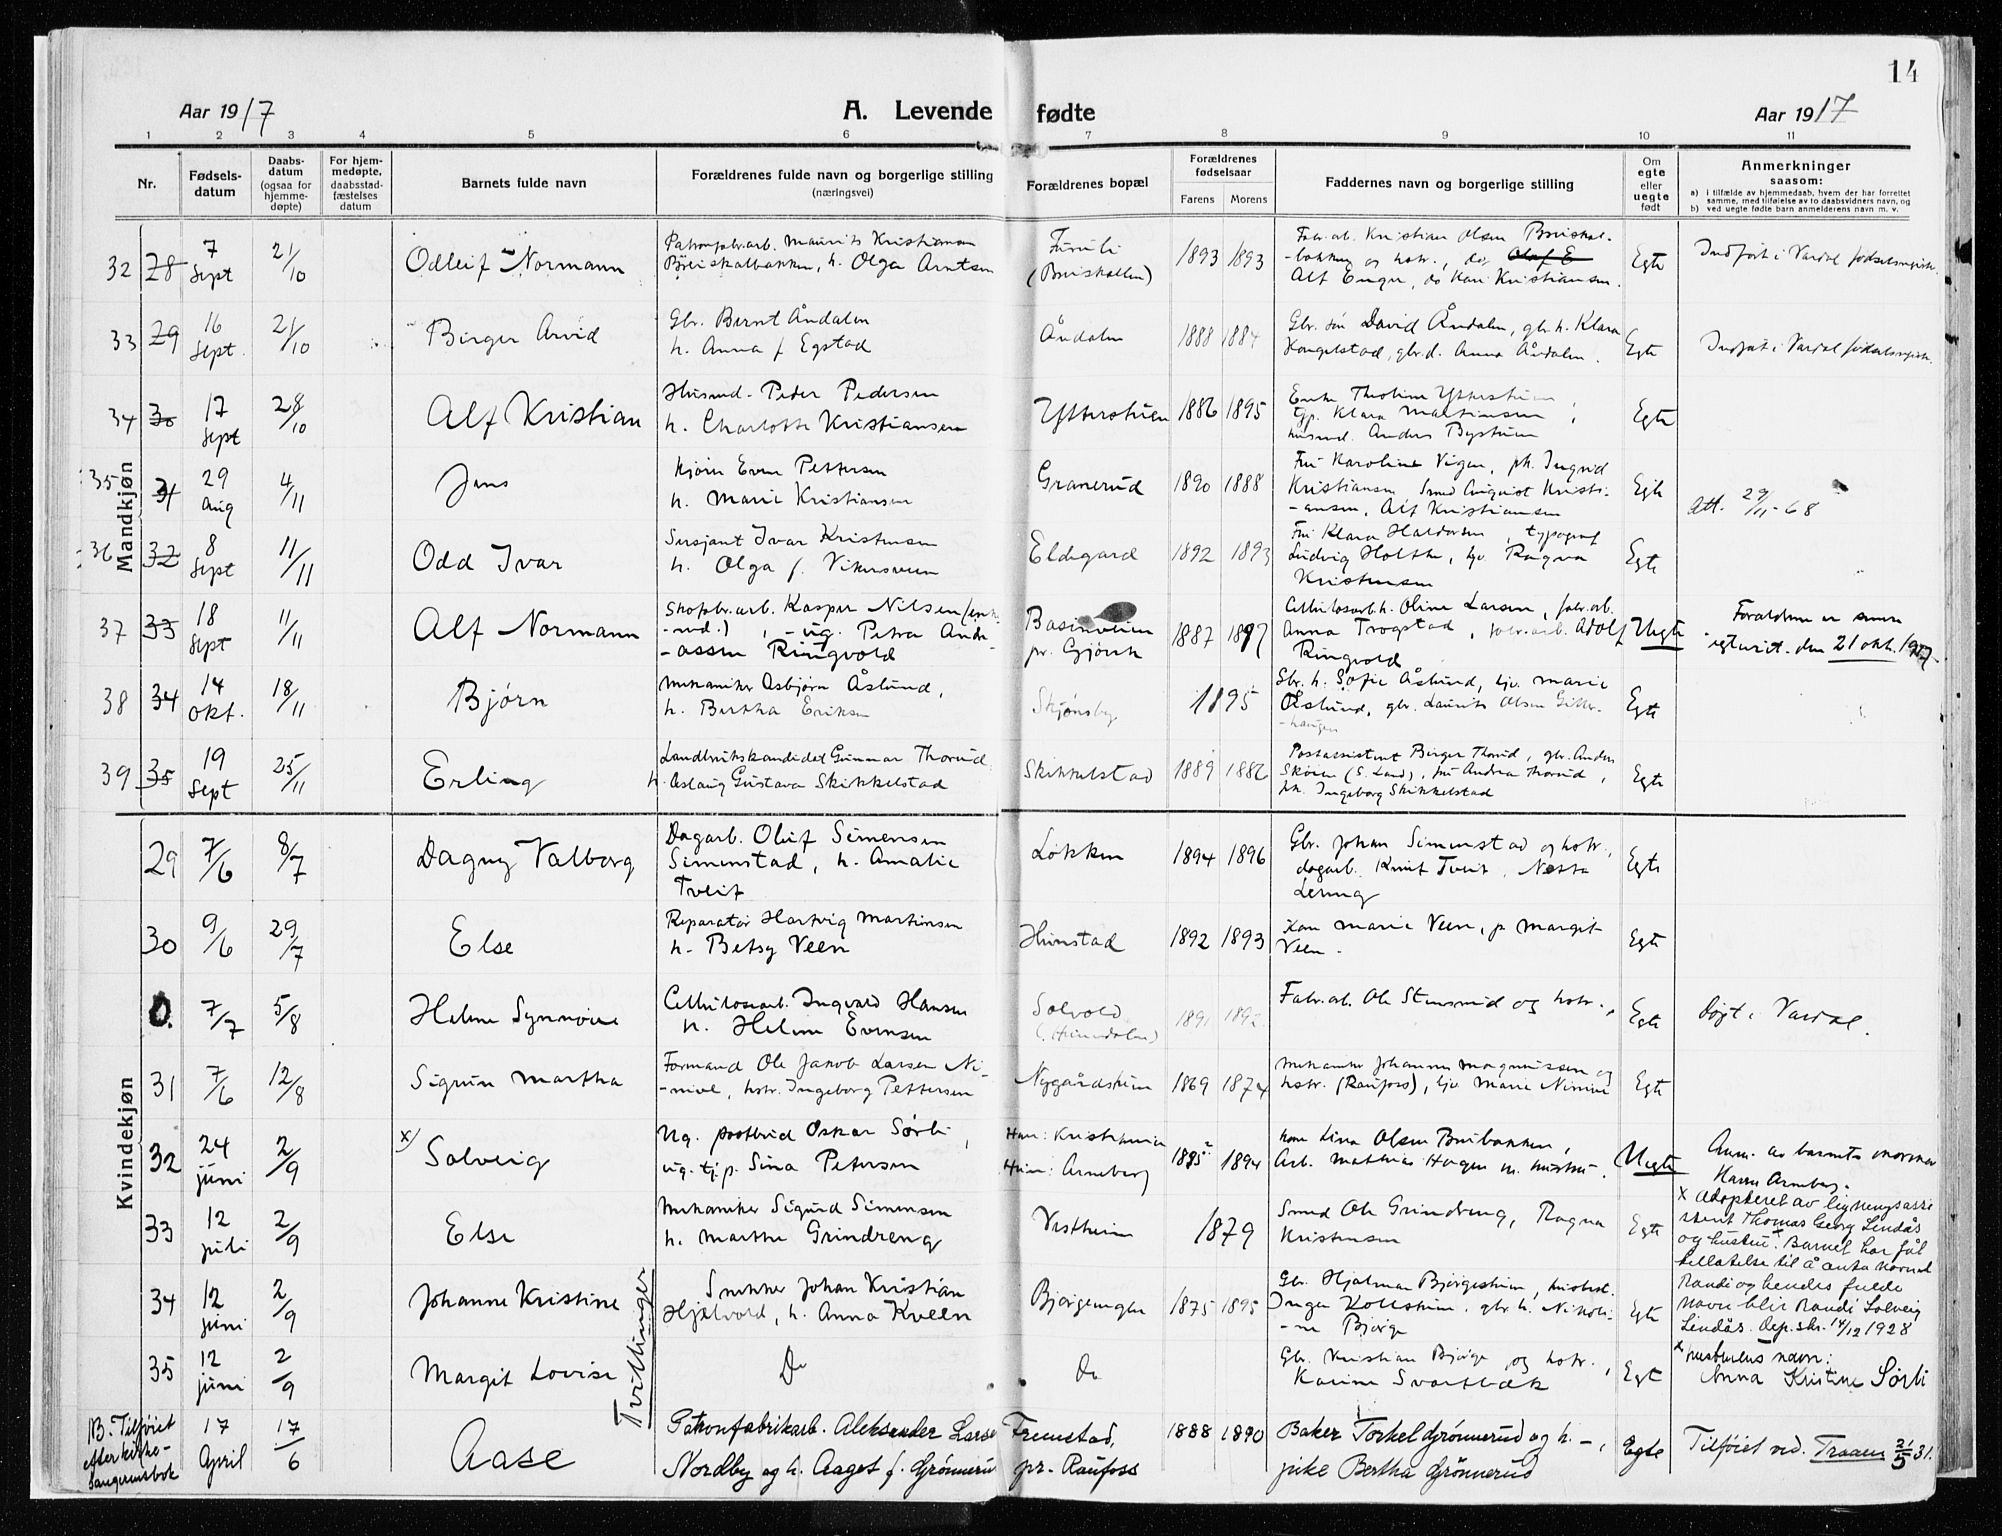 14
Aar 1917
A. Levende fødte
Aar 1917
1 2 3 4 5 6 7 8 9 10 11
Nr.
Fødsels-
datum
Daabs-
datum
(ogsaa for
hjemme-
døpte)
For hjem-
medøpte,
daabsstad-
fæstelses
datum
Barnets fulde navn
Forældrenes fulde navn og borgerlige stilling
(næringsvei)
Forældrenes bopæl
Forældrenes
fødselsaar
Farens Morens
Faddernes navn og borgerlige stilling
Om
egte
eller
uegte
født
Anmerkninger
saasom:
a) i tilfælde av hjemmedaab, hvem der har forrettet
samme, med tilføielse av to daabsvidners navn, og
b) ved uegte fødte barn anmelderens navn m. v.
Mandkjøn
32 28 7 Sept 21/10 Odleif Normann
Patronfabr.arb. Maurits Kristiansen
h. Olga Arntsen
Furuli
(Bruiskallen)
1893 1893
Fabr.arb. Kristian Olsen Bruiskal-
-bakken og hstr., do Olaf E
Alf Enger, do Kari Kristiansen.
Egte
Indført i Vardal fødselsregister.
33 29 16 Sept. 21/10 Birger Arvid
Gbr. Bernt Åndalen
h. Anna f Egstad
Åndalen
1888 1884
Gbr. søn David Åndalen, gbr.h. Klara
Kongelstad, gbr.d. Anna Åndalen.
Egte
Indført i Vardal fødselsregister.
34 30 17 Sept 28/10 Alf Kristian
Husmd. Peder Pedersen
h. Charlotte Kristiansen
Ytterstuen
1886 1895
Enke Theoline Ytterstuen,
tjp. Klara Martinsen,
husmd. Anders Bystuen
Egte
35 31 29 Aug 4/11 Jens
Kjører Even Pettersen
h. Marie Kristiansen
Granerud
1890 1888
Fru Karoline Vigen, pk. Ingrid
Kristiansen, Smed Kristi-
-ansen, Alf Kristiansen
Egte
Att. 29/11-68
36 32 8 Sept 11/11 Odd Ivar
Sersjant Ivar Kristensen
h. Olga f. Vikersveen
Eldegard
1892 1893
Fru Klara Haldorsen, typograf
Ludvig Holthe, hjv. Ragna
Kristensen
Egte
37 33 18 Sept 11/11 Alf Normann
Skofabr.arb. Kaspar Nilsen (enke-
-md.), - ug. Petra Andre-
-assen Ringvold
pr. Gjøvik
1887 1897
Cellulosearb.h. Oline Larsen, fabr.arb.
Anna Trogstad, fabr.arb. Adolf
Ringvold
Uegte
Forældrene er senere
egteviet. den 21 okt. 1917.
38 34 14 Okt. 18/11 Bjørn
Mekaniker Asbjørn Åslund,
h. Bertha Eriksen
Skjønsby
1895
Gbr. h. Sofie Åslund, hjv. Marie
Øslund, gbr. Laurits Olsen Gitter-
-haugen
Egte
39 35 19 Sept 25/11 Erling
Landbrukskandidat Gunnar Thorud,
h. Aslaug Gustava Skikkelstad
Skikkelstad
1889 1886
Postassistent Birger Thorud, gbr. Anders
Skøien (S. Land), fru Andrea Thorud,
pk. Ingeborg Skikkelstad
Egte
Kvindekjøn
29 7/6 8/7 Dagny Valborg
Dagarb. Oluf Simensen
Simenstad, h. Amalie
Tveit
Løkken
1894 1896
Gbr. Johan Simenstad og hstr.,
dagarb. Knut Tveit, Netta
Egte
30 9/6 29/7 Else
Reparatør Hartvig Martinsen
h. Betsy Veen
Hunstad
1892 1893
Kone Marie Veen, p. Margit
Veen.
Egte
0. 7/7 5/8 Helene Synnøve
Cellulosearb. Ingvald Hansen
h. Helene Evensen
Solvold
(Hunndalen)
1891 1892
Fabr.arb. Ole Stensrud og hstr.,
Egte
Døpt i Vardal.
31 7/6 12/8 Sigrun Martha
Formand Ole Jakob Larsen Ni-
-nive, hstr. Ingeborg Pettersen
Nygårdsheim
1869 1874
Mekaniker Johannes Magnussen og
hstr. (Raufoss), hjv. Marie Ninive
Egte
32 24 juni 2/9 x) Solveig
Ug. postbud Oskar Sørli,
ug. tj.p. Sina Petersen
Han: Kristiania
Hun: Arneberg
1895 1894
Kone Lina Olsen Bruibakken,
Arb. Mathias Hagen m. hustru.
Uegte
Anm. av barnets mormor
Karen Arneberg.
x Adopteret av ligningsassi
stent Thomas Georg Lindås
og hustru x. Barnet har fåt
tillatelse til å anta navnet
Randi og hendes fulde
navn blir Randi Solveig
Lindås. Dep. skr. 14/12 1928
x hustruens navn:
Anna Kristine Sørli
33 12 juli 2/9 Else
Mekaniker Sigurd Simensen
h. Marthe Grindreng
Vestheim
1879
Smed Ole Grindreng, Ragna
Kristensen
Egte
34 12 juni 2/9 Johanne Kristine
Tvillinger
Snekker Johan Kristian
Hjelvold, h. Anna Kveen
Bjørgeengen
1875 1895
Gbr. Hjalmar Bjørgesheim,
Inger Kollsheim, gbr. h. Nikoli-
-ne Bjørge
Egte
35 12 juni 2/9 Margit Lovise
Do
Do
Gbr. Kristian Bjørge og hstr.,
Karine Svartbæk
Egte
NB. Tilføiet
efter klokke-
17 April 17/6 Aase
Patronfabrikarb. Aleksander Larse
Nordby og h. Aagot f. Grønneru
Fremstad,
pr. Raufoss
1888 1890
Baker Torkel Grønnerud og h. -,
pike Bertha Grønnerud
Egte
Tilføiet ved. Traaen 21/5 31.